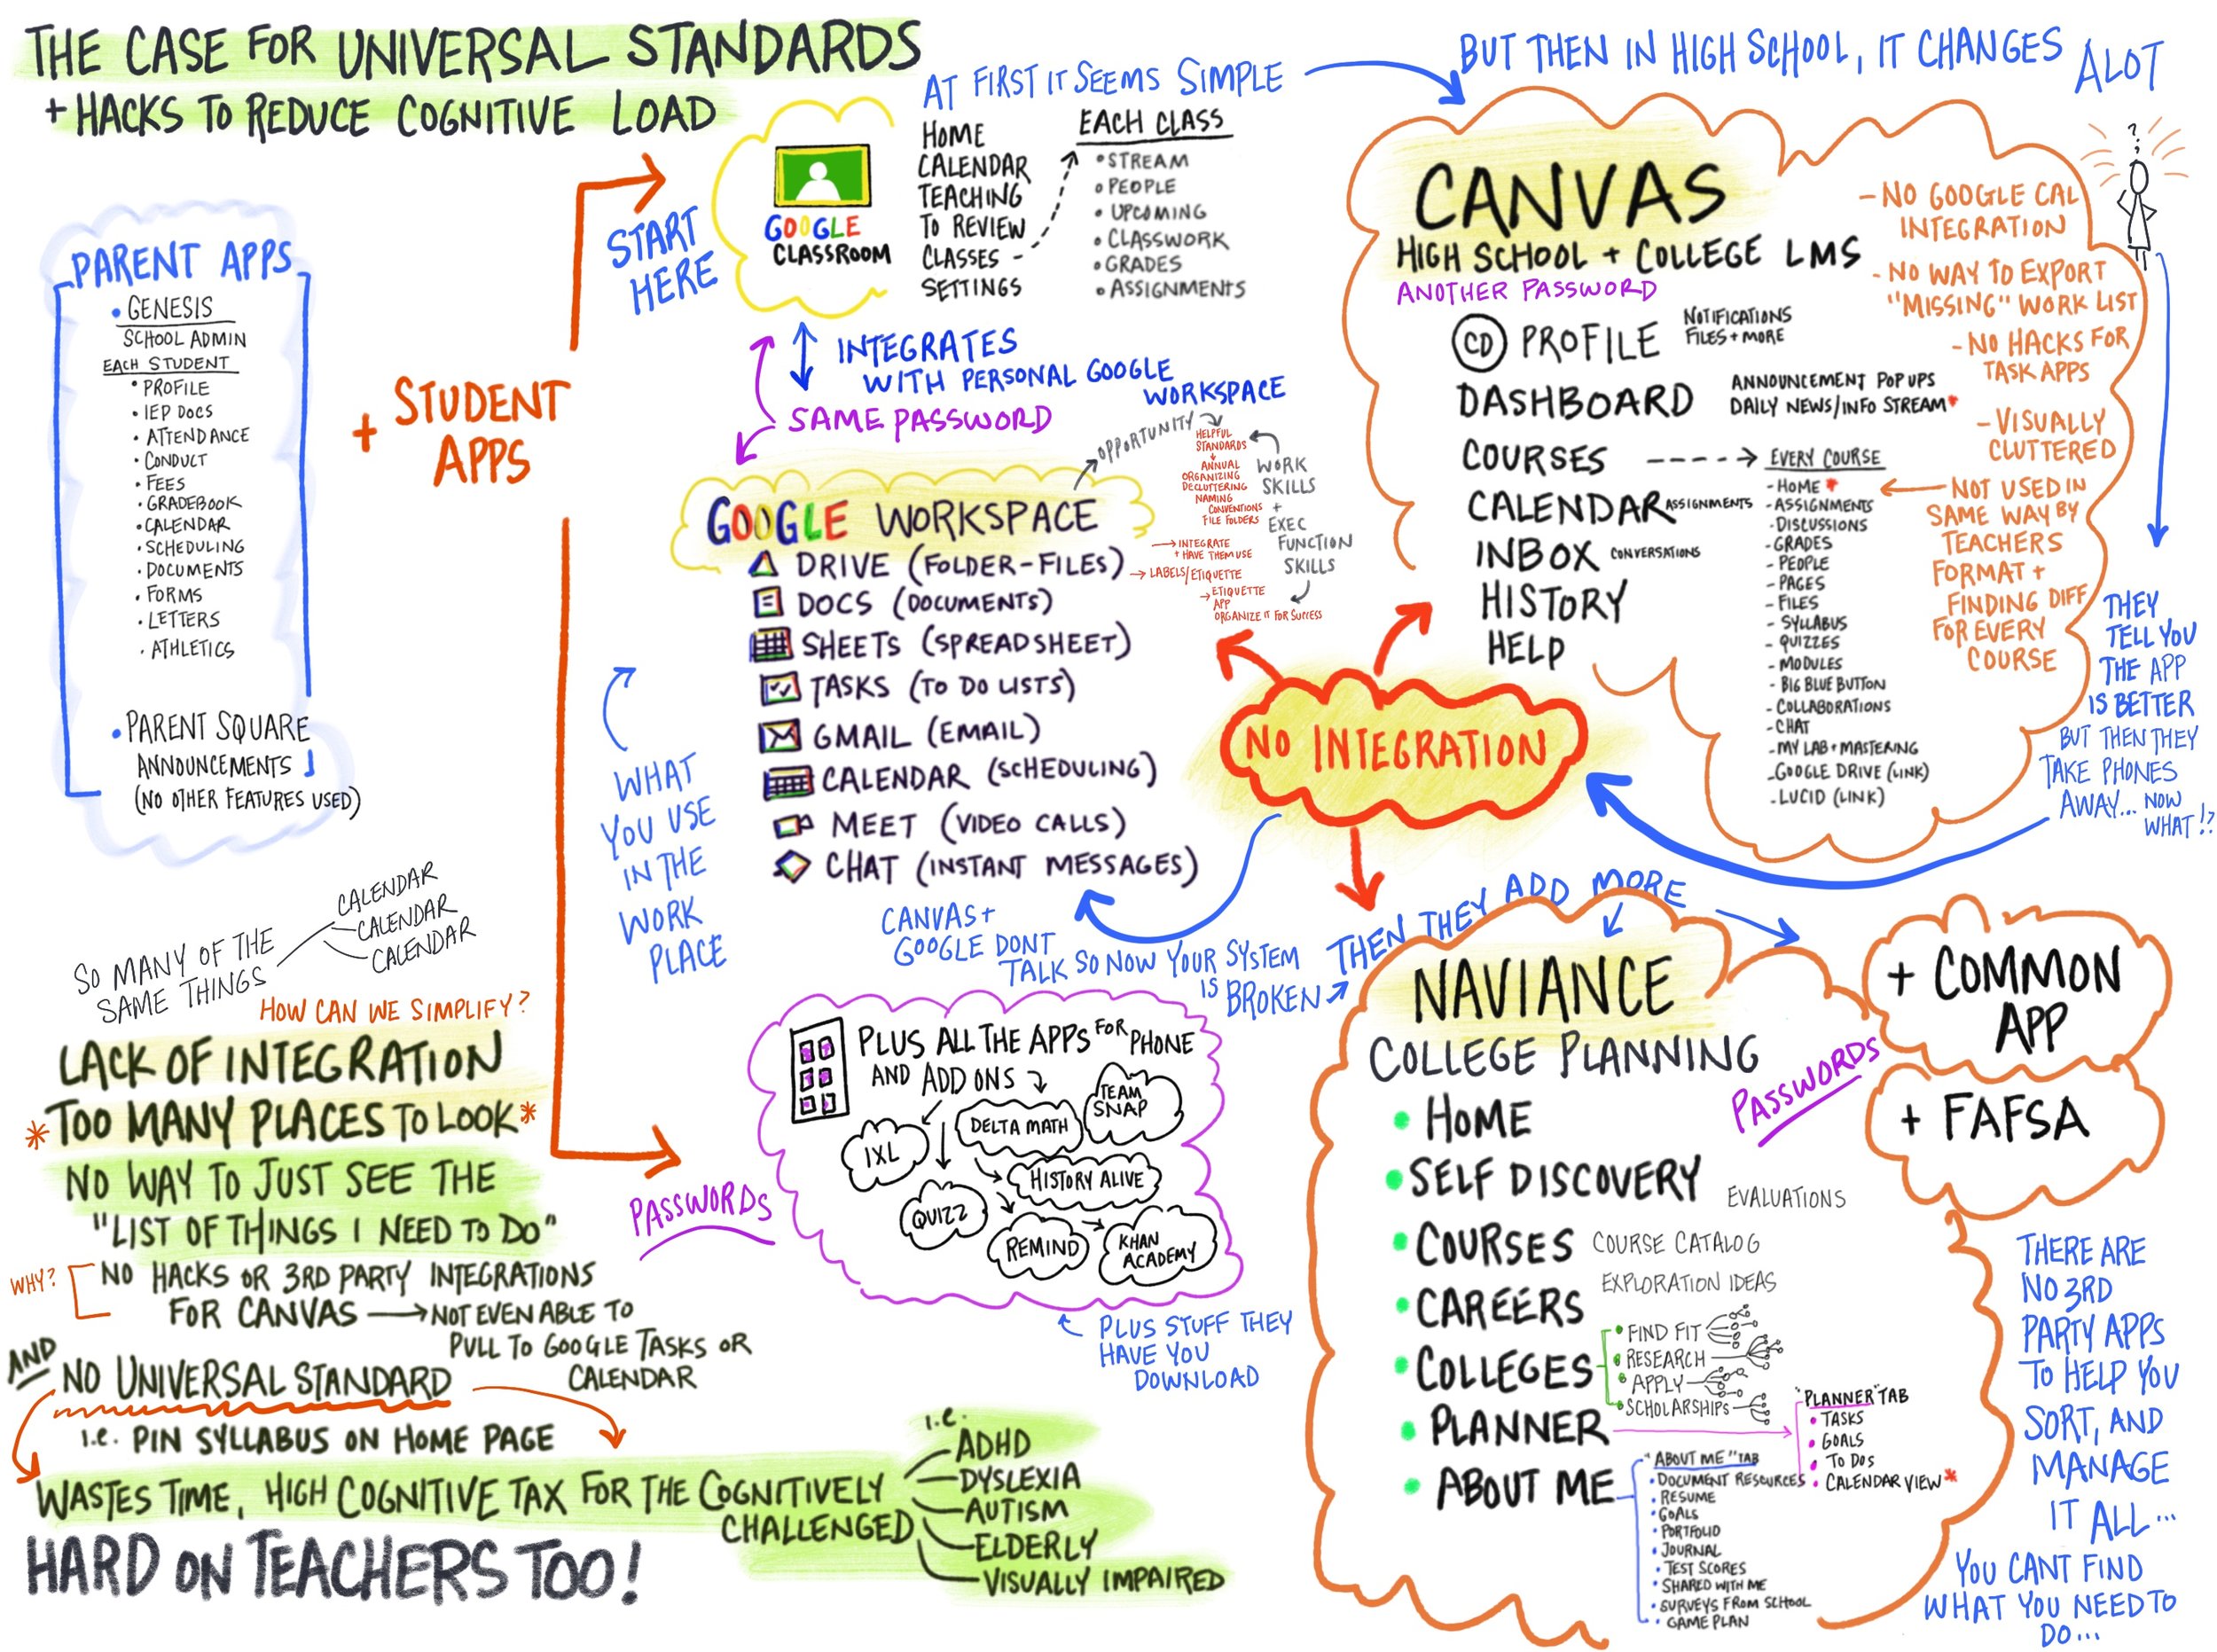 THE CASE FOR UNIVERSAL STANDARDS
+ HACKS TO REDUCE COGNITIVE LOAD
PARENT APPS
• GENESIS
SCHOOL ADMIN
EACH STUDENT
• PROFILE
• IEP DOCS
• ATTENDANCE
• CONDUCT
• FEES
• GRADEBOOK
• CALENDAR
• SCHEDULING
• DOCUMENTS
• FORMS
• LETTERS
• ATHLETICS
• PARENT SQUARE
ANNOUNCEMENTS
(NO OTHER FEATURES USED)
+ STUDENT
APPS
START
HERE
GOOGLE
CLASSROOM
AT FIRST IT SEEMS SIMPLE
HOME
CALENDAR
TEACHING
TO REVIEW
CLASSES -
SETTINGS
EACH CLASS
• STREAM
• PEOPLE
• UPCOMING
• CLASSWORK
• GRADES
• ASSIGNMENTS
INTEGRATES
WITH PERSONAL GOOGLE
WORKSPACE
SAME PASSWORD
OPPORTUNITY
HELPFUL
STANDARDS
ANNUAL
ORGANIZING
DECLUTTERING
NAMING
CONVENTIONS
FILE FOLDERS
WORK
SKILLS
+
EXEC
FUNCTION
SKILLS
→ INTEGRATE
+ HAVE THEM USE
→ LABELS/ETIQUETTE
→ ETIQUETTE
APP
ORGANIZE IT FOR SUCCESS
GOOGLE WORKSPACE
DRIVE (FOLDER-FILES)
DOCS (DOCUMENTS)
SHEETS (SPREADSHEET)
TASKS (TO DO LISTS)
GMAIL (EMAIL)
CALENDAR (SCHEDULING)
MEET (VIDEO CALLS)
CHAT (INSTANT MESSAGES)
WHAT
YOU USE
IN THE
WORK
PLACE
CANVAS +
GOOGLE DONT
TALK SO NOW YOUR SYSTEM
IS BROKEN
NO INTEGRATION
BUT THEN IN HIGH SCHOOL, IT CHANGES
ALOT
CANVAS
HIGH SCHOOL + COLLEGE LMS
ANOTHER PASSWORD
CD PROFILE
NOTIFICATIONS
FILES + MORE
DASHBOARD
ANNOUNCEMENT POP UPS
DAILY NEWS/INFO STREAM*
COURSES
CALENDAR ASSIGNMENTS
INBOX CONVERSATIONS
HISTORY
HELP
EVERY COURSE
- HOME *
- ASSIGNMENTS
- DISCUSSIONS
- GRADES
- PEOPLE
- PAGES
- FILES
- SYLLABUS
- QUIZZES
- MODULES
- BIG BLUE BUTTON
- COLLABORATIONS
- CHAT
- MY LAB + MASTERING
- GOOGLE DRIVE (LINK)
- LUCID (LINK)
- NO GOOGLE CAL
INTEGRATION
- NO WAY TO EXPORT
"MISSING" WORK LIST
- NO HACKS FOR
TASK APPS
- VISUALLY
CLUTTERED
NOT USED IN
SAME WAY BY
TEACHERS
FORMAT +
FINDING DIFF
FOR EVERY
COURSE
???
THEY
TELL YOU
THE APP
IS BETTER
BUT THEN THEY
TAKE PHONES
AWAY... NOW
WHAT!?
THEN THEY ADD MORE
NAVIANCE
COLLEGE PLANNING
PASSWORDS
+ COMMON
APP
+ FAFSA
• HOME
• SELF DISCOVERY EVALUATIONS
• COURSES COURSE CATALOG
• CAREERS EXPLORATION IDEAS
• COLLEGES
• FIND FIT
• RESEARCH
• APPLY
• SCHOLARSHIPS
• PLANNER
"PLANNER" TAB
• TASKS
• GOALS
• TO DOS
• CALENDAR VIEW *
• ABOUT ME
"ABOUT ME" TAB
• DOCUMENT RESOURCES
• RESUME
• GOALS
• PORTFOLIO
• JOURNAL
• TEST SCORES
• SHARED WITH ME
• SURVEYS FROM SCHOOL
• GAME PLAN
THERE ARE
NO 3RD
PARTY APPS
TO HELP YOU
SORT, AND
MANAGE
IT ALL...
YOU CANT FIND
WHAT YOU NEED TO
DO...
PASSWORDS
PLUS ALL THE APPS FOR PHONE
AND ADD ONS
TEAM
SNAP
DELTA MATH
IXL
HISTORY ALIVE
QUIZZ
REMIND
KHAN
ACADEMY
PLUS STUFF THEY
HAVE YOU
DOWNLOAD
SO MANY OF THE
SAME THINGS
CALENDAR
CALENDAR
CALENDAR
HOW CAN WE SIMPLIFY?
LACK OF INTEGRATION
* TOO MANY PLACES TO LOOK *
NO WAY TO JUST SEE THE
"LIST OF THINGS I NEED TO DO"
WHY?
NO HACKS OR 3RD PARTY INTEGRATIONS
FOR CANVAS → NOT EVEN ABLE TO
PULL TO GOOGLE TASKS OR
CALENDAR
AND
NO UNIVERSAL STANDARD
i.e. PIN SYLLABUS ON HOME PAGE
WASTES TIME, HIGH COGNITIVE TAX FOR THE COGNITIVELY
CHALLENGED
i.e.
ADHD
DYSLEXIA
AUTISM
ELDERLY
VISUALLY IMPAIRED
HARD ON TEACHERS TOO!